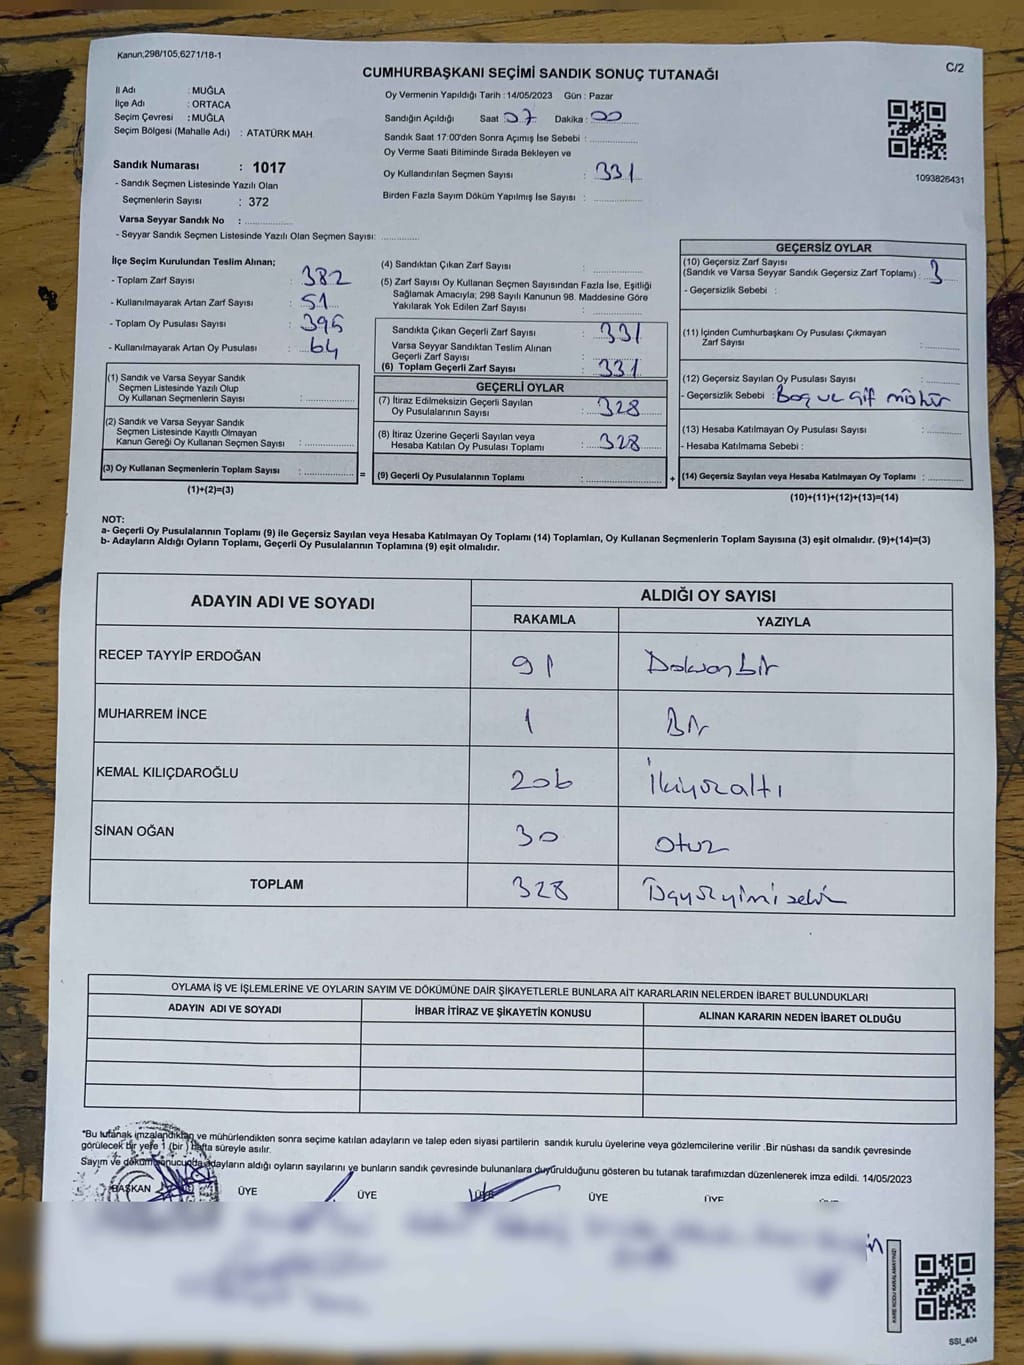 Kanun;298/105,6271/18-1
C/2
CUMHURBAŞKANI SEÇİMİ SANDIK SONUÇ TUTANAĞI
İl Adı : MUĞLA
İlçe Adı : ORTACA
Seçim Çevresi : MUĞLA
Seçim Bölgesi (Mahalle Adı) : ATATÜRK MAH.
Sandık Numarası : 1017
- Sandık Seçmen Listesinde Yazılı Olan
Seçmenlerin Sayısı : 372
Varsa Seyyar Sandık No :
- Seyyar Sandık Seçmen Listesinde Yazılı Olan Seçmen Sayısı:
Oy Vermenin Yapıldığı Tarih : 14/05/2023 Gün : Pazar
Sandığın Açıldığı Saat 07 Dakika : 00
Sandık Saat 17:00'den Sonra Açımış İse Sebebi :
Oy Verme Saati Bitiminde Sırada Bekleyen ve
Oy Kullandırılan Seçmen Sayısı : 331
Birden Fazla Sayım Döküm Yapılmış İse Sayısı :
1093826431
İlçe Seçim Kurulundan Teslim Alınan;
- Toplam Zarf Sayısı : 382
- Kullanılmayarak Artan Zarf Sayısı : 51
- Toplam Oy Pusulası Sayısı : 395
- Kullanılmayarak Artan Oy Pusulası : 64
(1) Sandık ve Varsa Seyyar Sandık
Seçmen Listesinde Yazılı Olup
Oy Kullanan Seçmenlerin Sayısı :
(2) Sandık ve Varsa Seyyar Sandık
Seçmen Listesinde Kayıtlı Olmayan
Kanun Gereği Oy Kullanan Seçmen Sayısı :
(3) Oy Kullanan Seçmenlerin Toplam Sayısı :
(1)+(2)=(3)
=
(4) Sandıktan Çıkan Zarf Sayısı :
(5) Zarf Sayısı Oy Kullanan Seçmen Sayısından Fazla İse, Eşitliği
Sağlamak Amacıyla; 298 Sayılı Kanunun 98. Maddesine Göre
Yakılarak Yok Edilen Zarf Sayısı :
Sandıkta Çıkan Geçerli Zarf Sayısı : 331
Varsa Seyyar Sandıktan Teslim Alınan
Geçerli Zarf Sayısı :
(6) Toplam Geçerli Zarf Sayısı : 331
GEÇERLİ OYLAR
(7) İtiraz Edilmeksizin Geçerli Sayılan
Oy Pusulalarının Sayısı : 328
(8) İtiraz Üzerine Geçerli Sayılan veya
Hesaba Katılan Oy Pusulası Toplamı : 328
(9) Geçerli Oy Pusulalarının Toplamı :
+
GEÇERSİZ OYLAR
(10) Geçersiz Zarf Sayısı
(Sandık ve Varsa Seyyar Sandık Geçersiz Zarf Toplamı) : 3
- Geçersizlik Sebebi :
(11) İçinden Cumhurbaşkanı Oy Pusulası Çıkmayan
Zarf Sayısı :
(12) Geçersiz Sayılan Oy Pusulası Sayısı :
- Geçersizlik Sebebi : Boş ve çift mühür
(13) Hesaba Katılmayan Oy Pusulası Sayısı :
- Hesaba Katılmama Sebebi :
(14) Geçersiz Sayılan veya Hesaba Katılmayan Oy Toplamı :
(10)+(11)+(12)+(13)=(14)
NOT:
a- Geçerli Oy Pusulalarının Toplamı (9) ile Geçersiz Sayılan veya Hesaba Katılmayan Oy Toplamı (14) Toplamları, Oy Kullanan Seçmenlerin Toplam Sayısına (3) eşit olmalıdır. (9)+(14)=(3)
b- Adayların Aldığı Oyların Toplamı, Geçerli Oy Pusulalarının Toplamına (9) eşit olmalıdır.
ADAYIN ADI VE SOYADI
ALDIĞI OY SAYISI
RAKAMLA YAZIYLA
RECEP TAYYİP ERDOĞAN 91 Doksanbir
MUHARREM İNCE 1 Bir
KEMAL KILIÇDAROĞLU 206 İkiyüzaltı
SİNAN OĞAN 30 otuz
TOPLAM 328 Üçyüzyirmisekiz
OYLAMA İŞ VE İŞLEMLERİNE VE OYLARIN SAYIM VE DÖKÜMÜNE DAİR ŞİKAYETLERLE BUNLARA AİT KARARLARIN NELERDEN İBARET BULUNDUKLARI
ADAYIN ADI VE SOYADI İHBAR İTİRAZ VE ŞİKAYETİN KONUSU ALINAN KARARIN NEDEN İBARET OLDUĞU
*Bu tutanak imzalandıktan ve mühürlendikten sonra seçime katılan adayların ve talep eden siyasi partilerin sandık kurulu üyelerine veya gözlemcilerine verilir .Bir nüshası da sandık çevresinde
görülecek bir yere 1 (bir ) Hafta süreyle asılır.
Sayım ve döküm sonucunda adayların aldığı oyların sayılarını ve bunların sandık çevresinde bulunanlara duyurulduğunu gösteren bu tutanak tarafımızdan düzenlenerek imza edildi. 14/05/2023
BAŞKAN ÜYE ÜYE ÜYE ÜYE ÜYE
KARE KODU KARALAMAYINIZ!
SSI_404